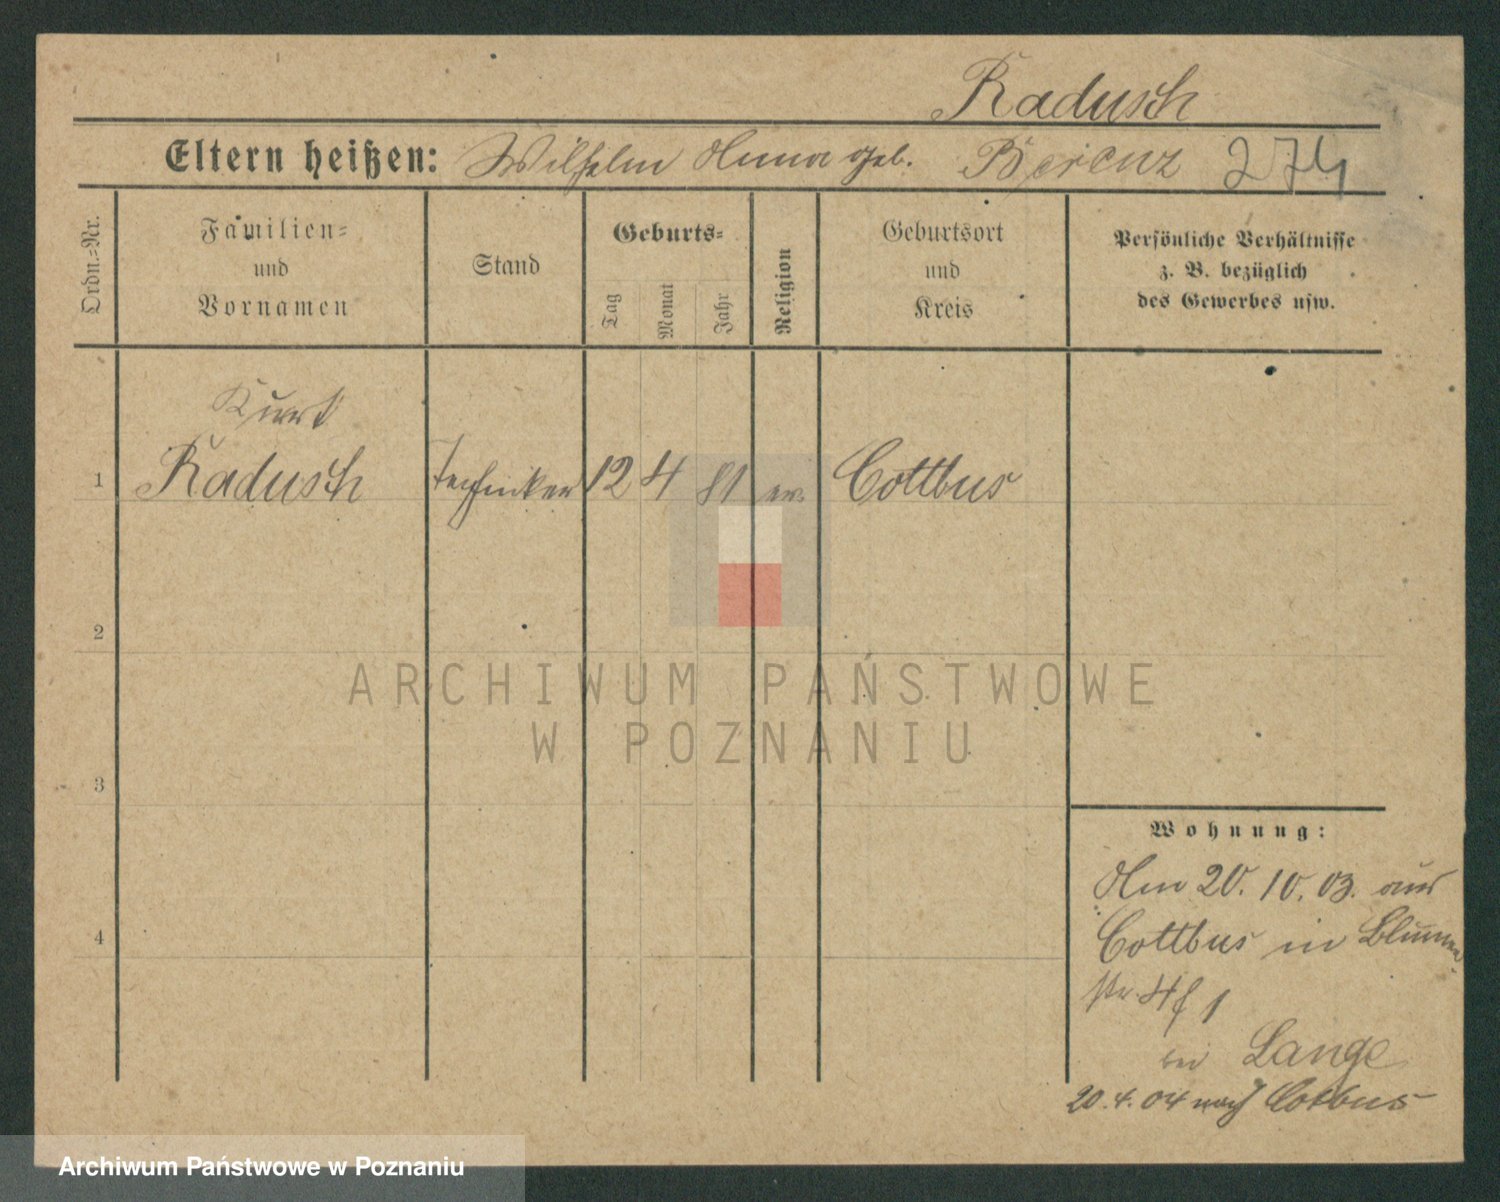 Radusch
Eltern heißen: Wilhelm Anna geb.
274
Ordn.=Nr.
Familien=
und
Vornamen
Stand
Geburts=
Tag
Monat
Jahr
Religion
Geburtsort
und
Kreis
Persönliche Verhältnisse
z. B. bezüglich
des Gewerbes usw.
Kurt
1 Radusch Techniker 12 4 81 ev. Cottbus
2
3
4
ARCHIWUM PAŃSTWOWE
W POZNANIU
Wohnung:
Am 20. 10. 03. aus
Cottbus in Blumen
str. 4
bei Lange
20. 4. 04 nach Cotbus
Archiwum Państwowe w Poznaniu